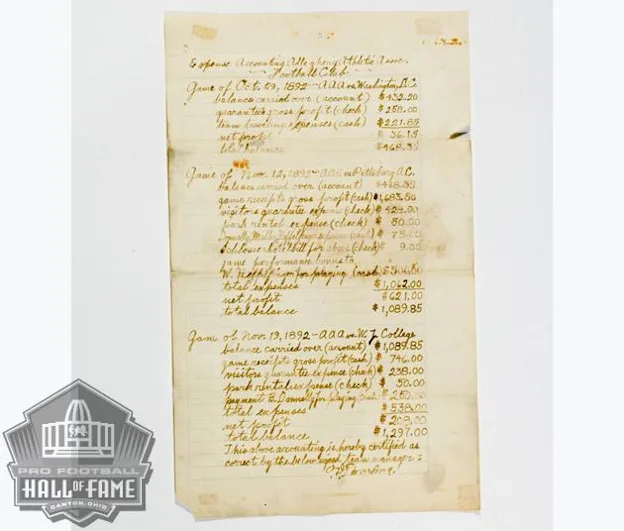 Expense Accounting Allegheny Athletic Assoc.
Football Club
Game of Oct. 29, 1892 - AAA vs Washington, D.C.
balance carried over (account) $432.20
guarantee gross profit (check) $258.00
team traveling expenses (cash) $221.85
net profit $36.15
total balance $468.35
Game of Nov. 12, 1892 - AAA vs Pittsburg A.C.
balance carried over (account) $468.35
game receipts gross profit (cash) $1,683.50
visitors guarantee expense (check) $428.00
park rental expense (check) $50.00
expense (cash) $75.00
Schlosser hotel bill for above (check) $9.00
game performance bonus to
W. Heffelfinger for playing (cash) $500.00
total expenses $1,062.00
net profit $621.00
total balance $1,089.85
Game of Nov. 19, 1892 - AAA vs W. J. College
balance carried over (account) $1,089.85
game receipts gross profit (cash) $746.00
visitors guarantee expense (check) $238.00
park rental expense (check) $50.00
payment to Donnelly for playing (cash) $250.00
total expenses $538.00
net profit $208.00
total balance $1,297.00
This above accounting is hereby certified as
correct by the below signed team manager:
PRO FOOTBALL
HALL OF FAME
CANTON, OHIO